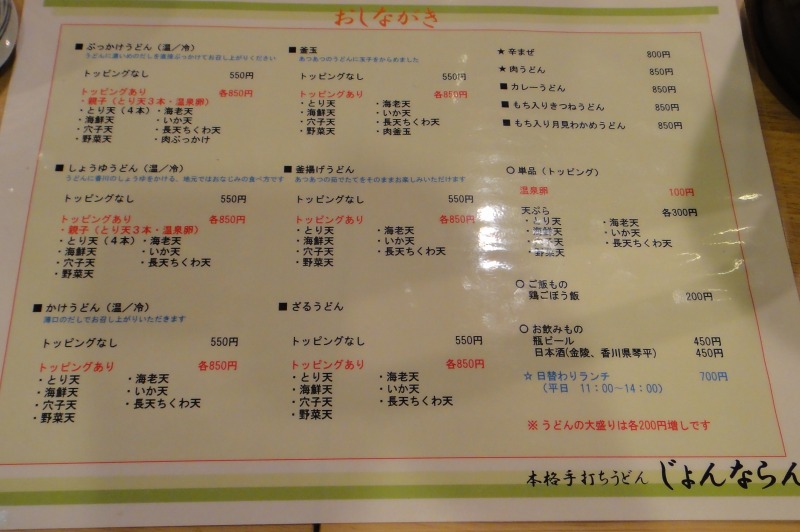 おしながき
■ ぶっかけうどん（温／冷）
うどんに濃いめのだしを直接ぶっかけてお召し上がりください
トッピングなし 550円
トッピングあり 各850円
・親子（とり天３本・温泉卵）
・とり天（４本）・海老天
・海鮮天 ・いか天
・穴子天 ・長天ちくわ天
・野菜天 ・肉ぶっかけ
■ しょうゆうどん（温／冷）
うどんに香川のしょうゆをかける、地元ではおなじみの食べ方です
トッピングなし 550円
トッピングあり 各850円
・親子（とり天３本・温泉卵）
・とり天（４本）・海老天
・海鮮天 ・いか天
・穴子天 ・長天ちくわ天
・野菜天
■ かけうどん（温／冷）
溝口のだしでお召し上がりいただきます
トッピングなし 550円
トッピングあり 各850円
・とり天 ・海老天
・海鮮天 ・いか天
・穴子天 ・長天ちくわ天
・野菜天
■ 釜玉
あつあつのうどんに玉子をからめました
トッピングなし 550円
トッピングあり 各850円
・とり天 ・海老天
・海鮮天 ・いか天
・穴子天 ・長天ちくわ天
・野菜天 ・肉釜玉
■ 釜揚げうどん
あつあつの茹でたてをそのままお楽しみいただけます
トッピングなし 550円
トッピングあり 各850円
・とり天 ・海老天
・海鮮天 ・いか天
・穴子天 ・長天ちくわ天
・野菜天
■ ざるうどん
トッピングなし 550円
トッピングあり 各850円
・とり天 ・海老天
・海鮮天 ・いか天
・穴子天 ・長天ちくわ天
・野菜天
★ 辛まぜ 800円
★ 肉うどん 850円
■ カレーうどん 850円
■ もち入りきつねうどん 850円
■ もち入り月見わかめうどん 850円
○ 単品（トッピング）
温泉卵 100円
天ぷら 各300円
・とり天 ・海老天
・海鮮天 ・いか天
・穴子天 ・長天ちくわ天
・野菜天
○ ご飯もの
鶏ごぼう飯 200円
○ お飲みもの
瓶ビール 450円
日本酒(金陵、香川県琴平) 450円
☆ 日替わりランチ 700円
（平日 11：00～14：00）
※ うどんの大盛りは各200円増しです
本格手打ちうどん じょんならん